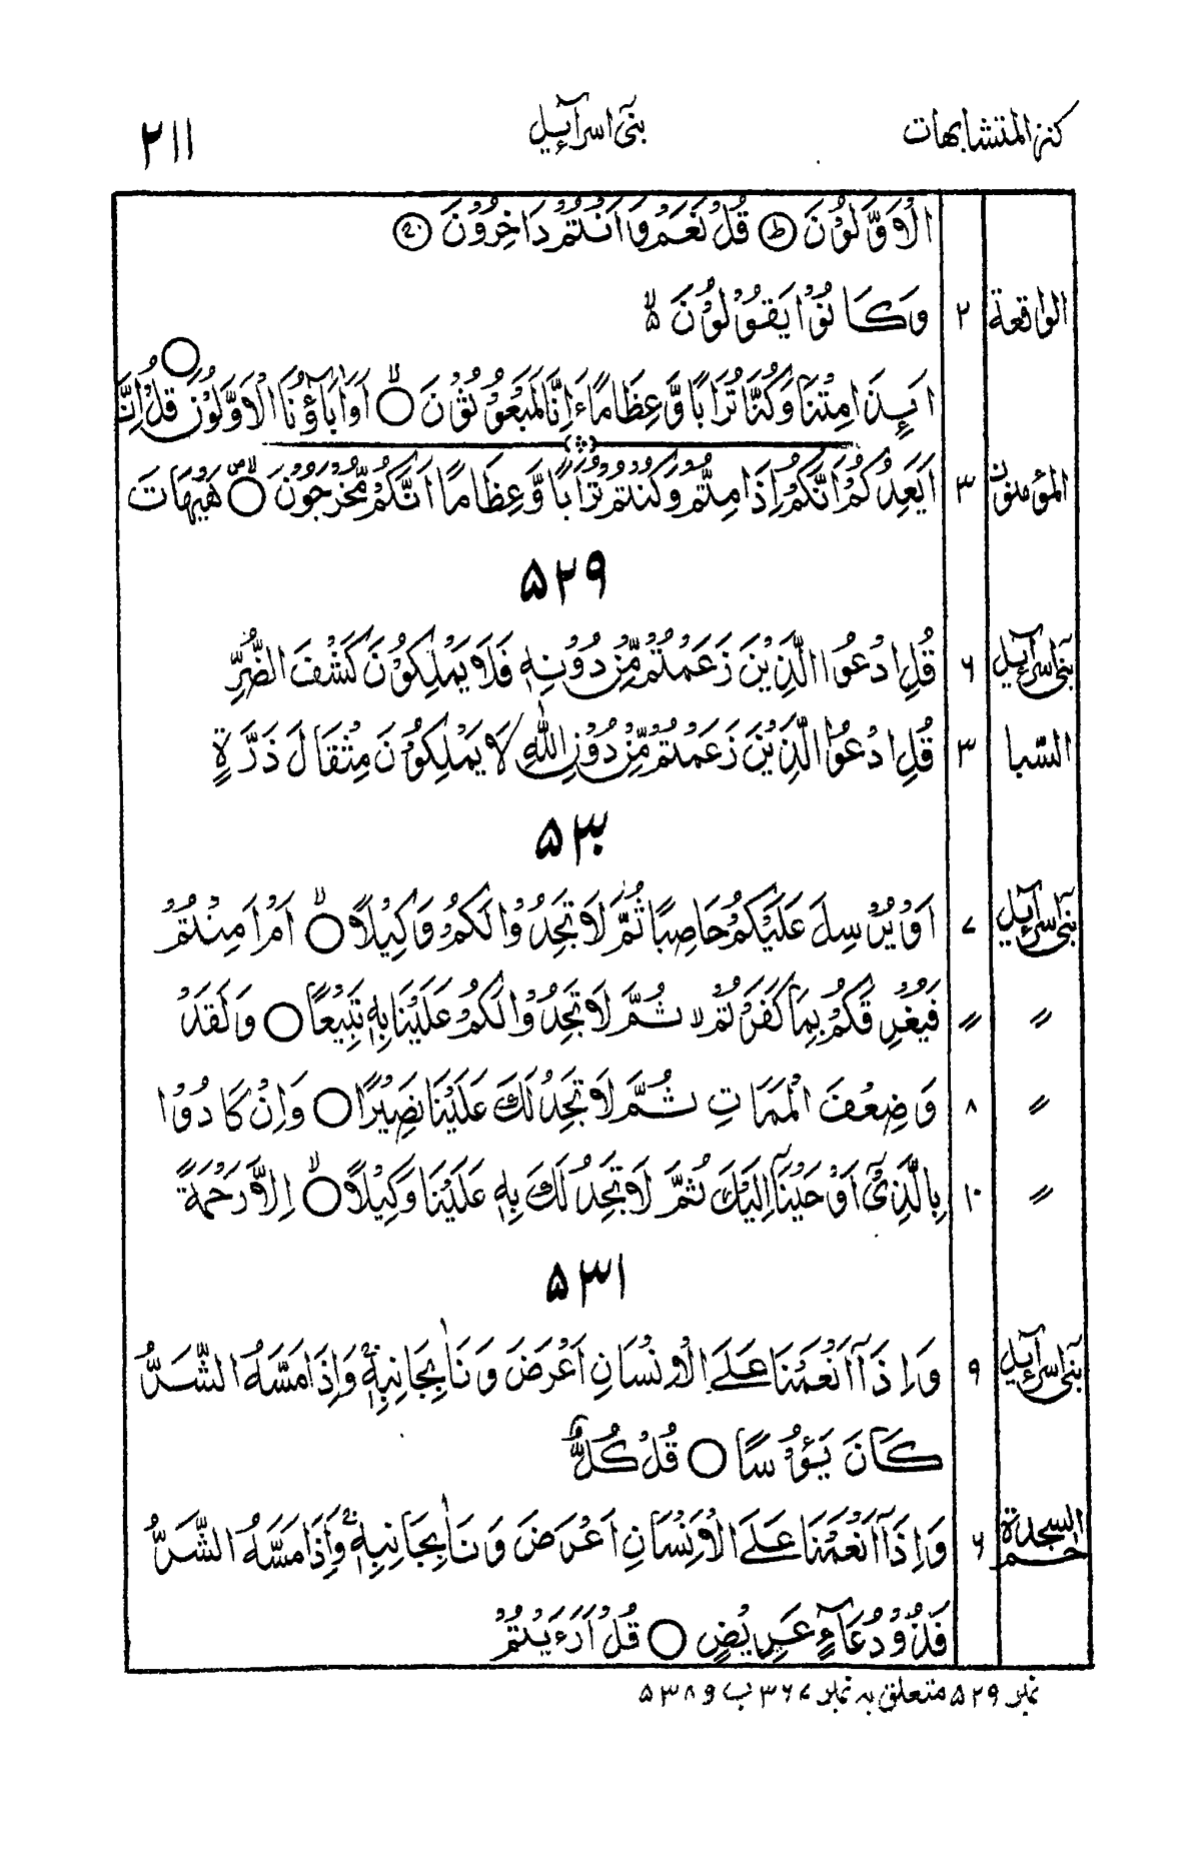 كنز المتشابهات بنیٓ اسرآئيل ۲۱۱
الْاَوَّلُوْنَ ؕ قُلْ نَعَمْ وَاَنْتُمْ دَاخِرُوْنَ
الواقعة ۲ وَكَانُوْا يَقُوْلُوْنَ ۙ
اَئِذَا مِتْنَا وَكُنَّا تُرَابًا وَّعِظَامًا ءَاِنَّا لَمَبْعُوْثُوْنَ ۙ○ اَوَاٰبَآؤُنَا الْاَوَّلُوْنَ ○ قُلْ اِنَّ
المؤمنون ۳ اَيَعِدُكُمْ اَنَّكُمْ اِذَا مِتُّمْ وَكُنْتُمْ تُرَابًا وَّعِظَامًا اَنَّكُمْ مُّخْرَجُوْنَ ○ هَيْهَاتَ
۵۲۹
بنیٓ اسرآئيل ۶ قُلِ ادْعُوا الَّذِيْنَ زَعَمْتُمْ مِّنْ دُوْنِهٖ فَلَا يَمْلِكُوْنَ كَشْفَ الضُّرِّ
السّبا ۳ قُلِ ادْعُوا الَّذِيْنَ زَعَمْتُمْ مِّنْ دُوْنِ اللّٰهِ لَا يَمْلِكُوْنَ مِثْقَالَ ذَرَّةٍ
۵۳۰
بنیٓ اسرآئيل ۷ اَوْ يُرْسِلَ عَلَيْكُمْ حَاصِبًا ثُمَّ لَا تَجِدُوْا لَكُمْ وَكِيْلًا ۙ○ اَمْ اَمِنْتُمْ
〃 〃 فَيُغْرِقَكُمْ بِمَا كَفَرْتُمْ ۙ ثُمَّ لَا تَجِدُوْا لَكُمْ عَلَيْنَا بِهٖ تَبِيْعًا ○ وَلَقَدْ
〃 ۸ وَضِعْفَ الْمَمَاتِ ثُمَّ لَا تَجِدُ لَكَ عَلَيْنَا نَصِيْرًا ○ وَاِنْ كَادُوْا
〃 ۱۰ بِالَّذِيْٓ اَوْحَيْنَآ اِلَيْكَ ثُمَّ لَا تَجِدُ لَكَ بِهٖ عَلَيْنَا وَكِيْلًا ۙ○ اِلَّا رَحْمَةً
۵۳۱
بنیٓ اسرآئيل ۹ وَاِذَآ اَنْعَمْنَا عَلَى الْاِنْسَانِ اَعْرَضَ وَنَاٰ بِجَانِبِهٖ ۚ وَاِذَا مَسَّهُ الشَّرُّ
كَانَ يَئُوْسًا ○ قُلْ كُلٌّ
حٰم السجدة ۶ وَاِذَآ اَنْعَمْنَا عَلَى الْاِنْسَانِ اَعْرَضَ وَنَاٰ بِجَانِبِهٖ ۚ وَاِذَا مَسَّهُ الشَّرُّ
فَذُوْ دُعَآءٍ عَرِيْضٍ ○ قُلْ اَرَءَيْتُمْ
نمبر ۵۲۹ متعلق به نمبر ۳۶۷ ب و ۵۳۸